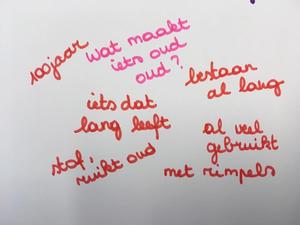 100 jaar
wat maakt
iets oud
oud?
bestaan
al lang
iets dat
lang leeft
al veel
gebruikt
stof,
ruikt oud
met rimpels